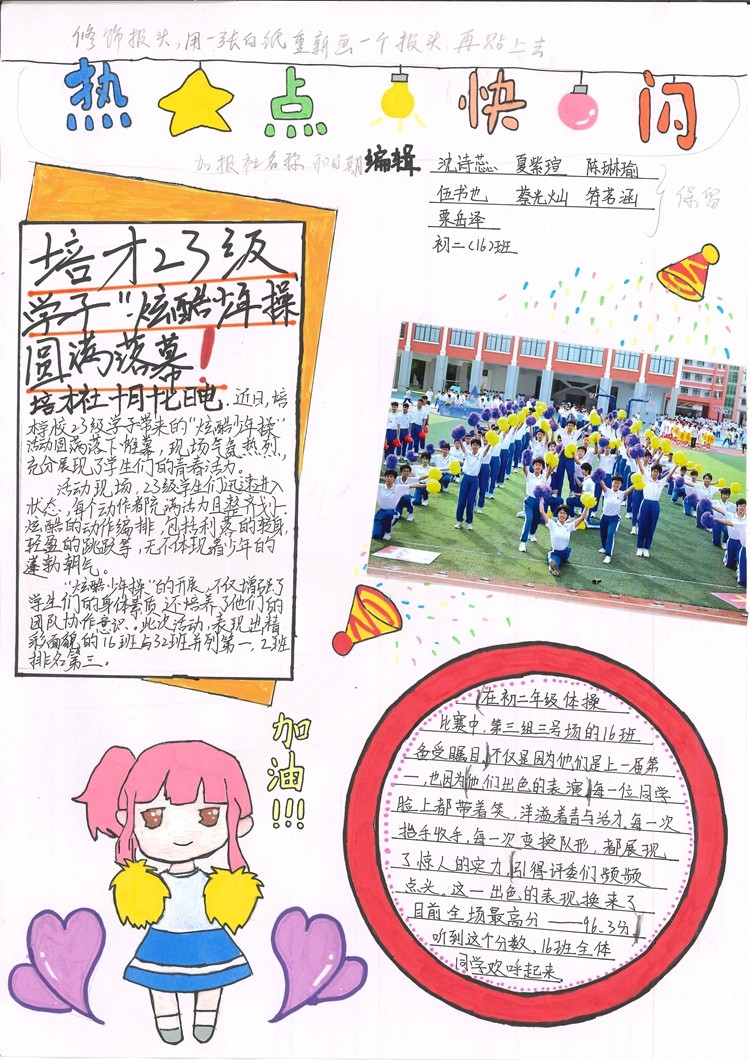 修饰报头,用一张白纸重新画一个报头.再贴上去.
热点快闪
加报社名称和日期
编辑 沈诗蕊 夏紫瑄 陈琳瑜
伍书也 蔡光灿 符茗涵
粟岳泽
保留
初二(16)班
培才23级
学子"炫酷少年操
圆满落幕!
培才社十月十七日电.近日,培
才学校23级学子带来的"炫酷少年操"
活动圆满落下帷幕,现场气氛热烈,
充分展现了学生们的青春活力。
活动现场,23级学生们迅速进入
状态,每个动作都充满活力且整齐划一.
炫酷的动作编排,包括利落的转身,
轻盈的跳跃等,无不体现着少年的
蓬勃朝气。
"炫酷少年操"的开展,不仅增强了
学生们的身体素质,还培养了他们的
团队协作意识.此次活动,表现出精
彩面貌的16班与32班并列第一,2班
排名第三。
加油!!!
在初二年级体操
比赛中,第三组三号场的16班
备受瞩目,不仅是因为他们是上一届第
一,也因为他们出色的表演,每一位同学
脸上都带着笑,洋溢着青与活力,每一次
抬手收手,每一次变换队形,都展现
了惊人的实力,引得评委们频频
点头.这一出色的表现换来了
目前全场最高分——96.3分,
听到这个分数,16班全体
同学欢呼起来